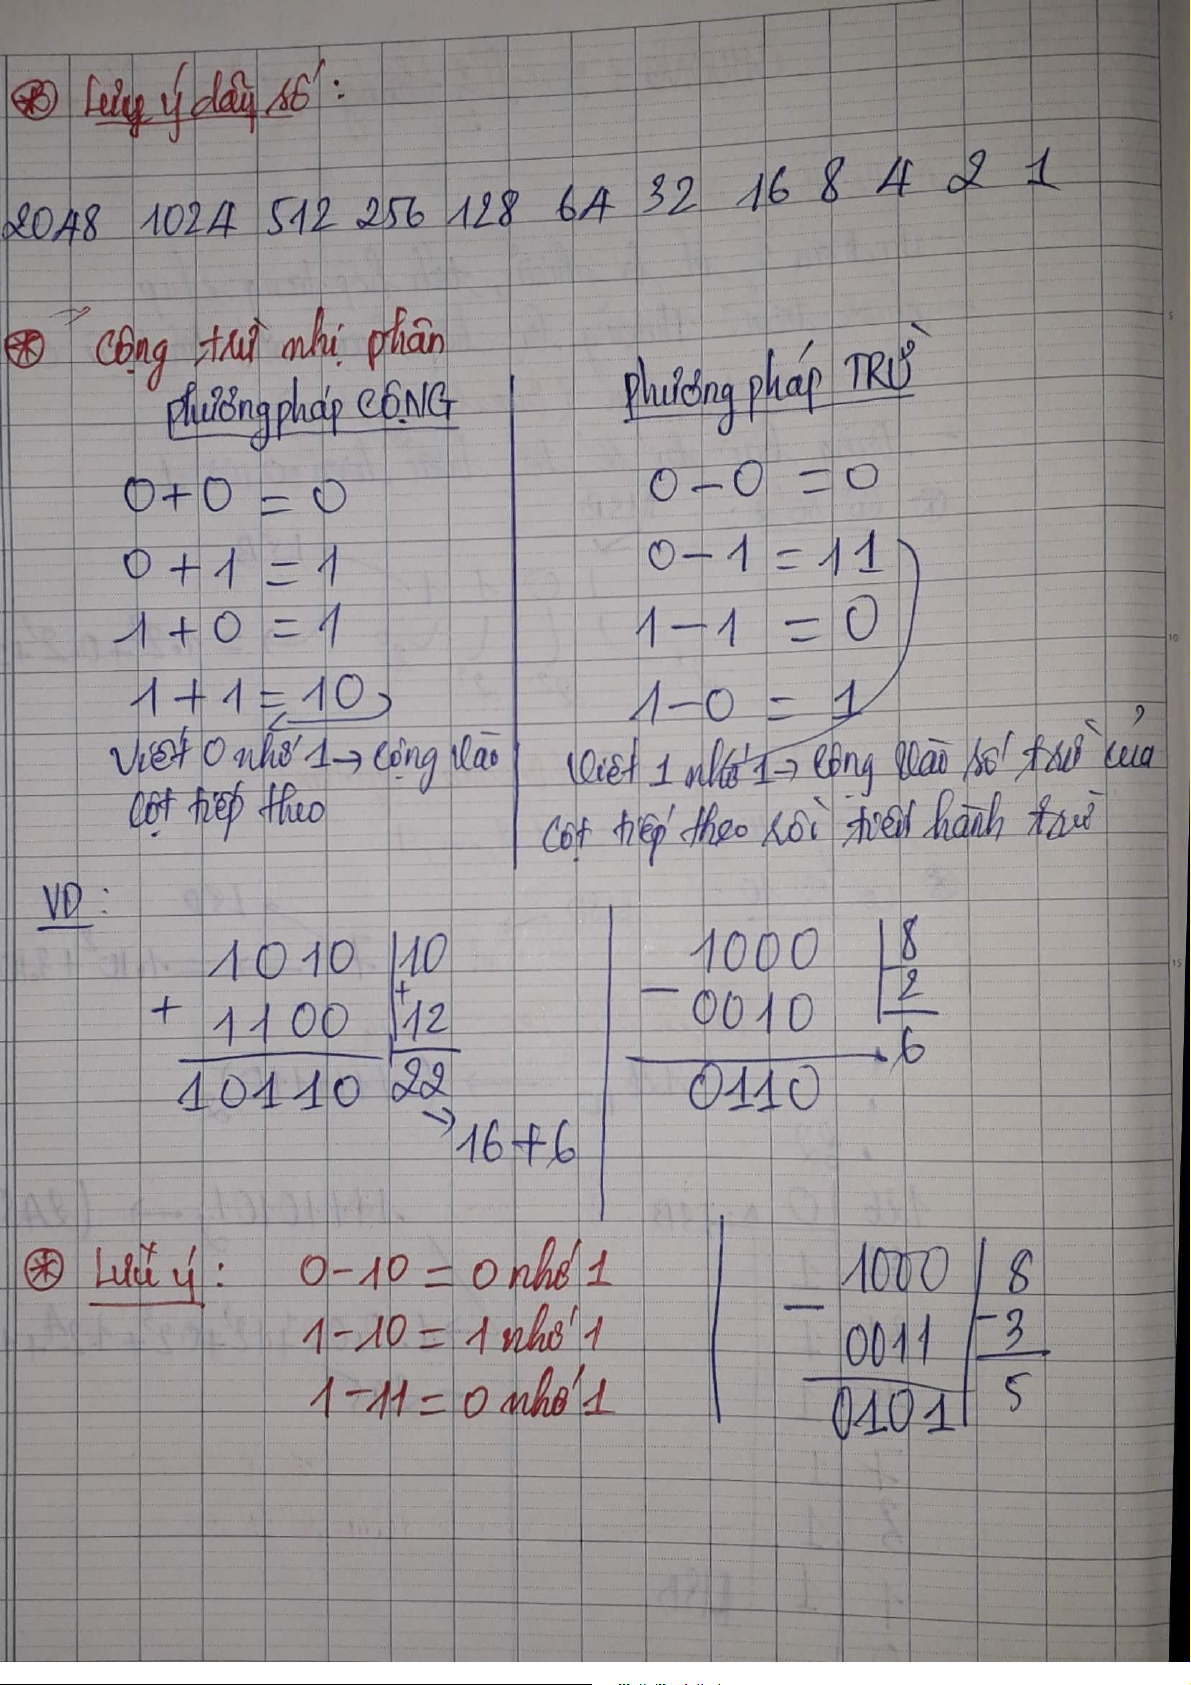 ⊛ Lưu ý dãy số:
2048 1024 512 256 128 64 32 16 8 4 2 1
⊛ Cộng trừ nhị phân
phương pháp CỘNG
0+0 = 0
0+1 = 1
1+0 = 1
1+1 = 10
Viết 0 nhớ 1 → Cộng vào
cột tiếp theo
phương pháp TRỪ
0-0 = 0
0-1 = 11
1-1 = 0
1-0 = 1
Viết 1 nhớ 1 → Cộng vào số trừ của
cột tiếp theo rồi tiến hành trừ
VD:
1010 | 10
+ 1100 | + 12
10110 | 22
→ 16+6
1000 | 8
- 0010 | 2
0110 6
⊛ Lưu ý: 0-10 = 0 nhớ 1
1-10 = 1 nhớ 1
1-11 = 0 nhớ 1
1000 | 8
- 0011 | -3
0101 | 5